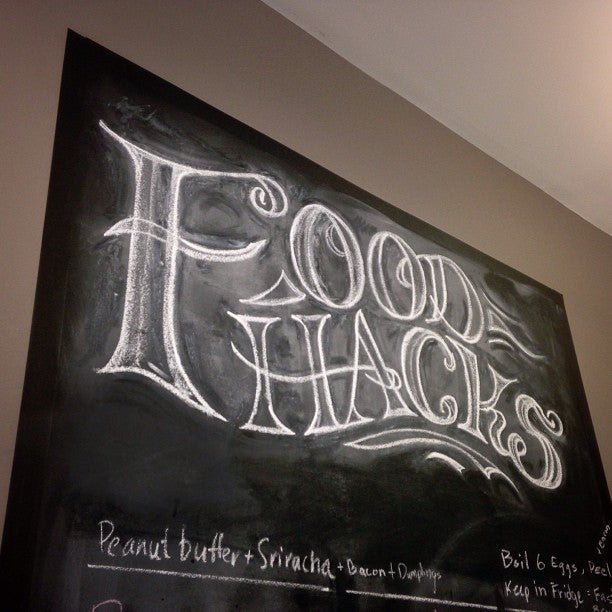 Food
Hacks
Peanut butter + Sriracha + Bacon + Dumplings
Boil 6 Eggs, Peel
Keep in Fridge =